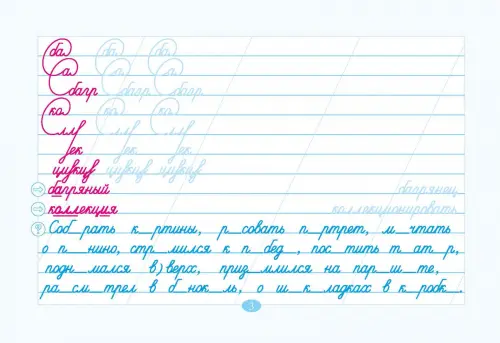 ба ба ба
а а а
багр багр багр
ко ко ко
лл лл лл
лек лек лек
цицкиця цицкиця цицкиця
багряный багрянец
коллекция коллекционировать
Соб_рать к_ртины, р_совать п_ртрет, м_чтать
о п_нино, стр_мился к п_бед_, пос_тить т_ат_р,
подн_мался в)верх, приз_млился на пар_ш_те,
ра_см_трел в б_нок_ль, о ш_к_ладках в к_робк_.
3